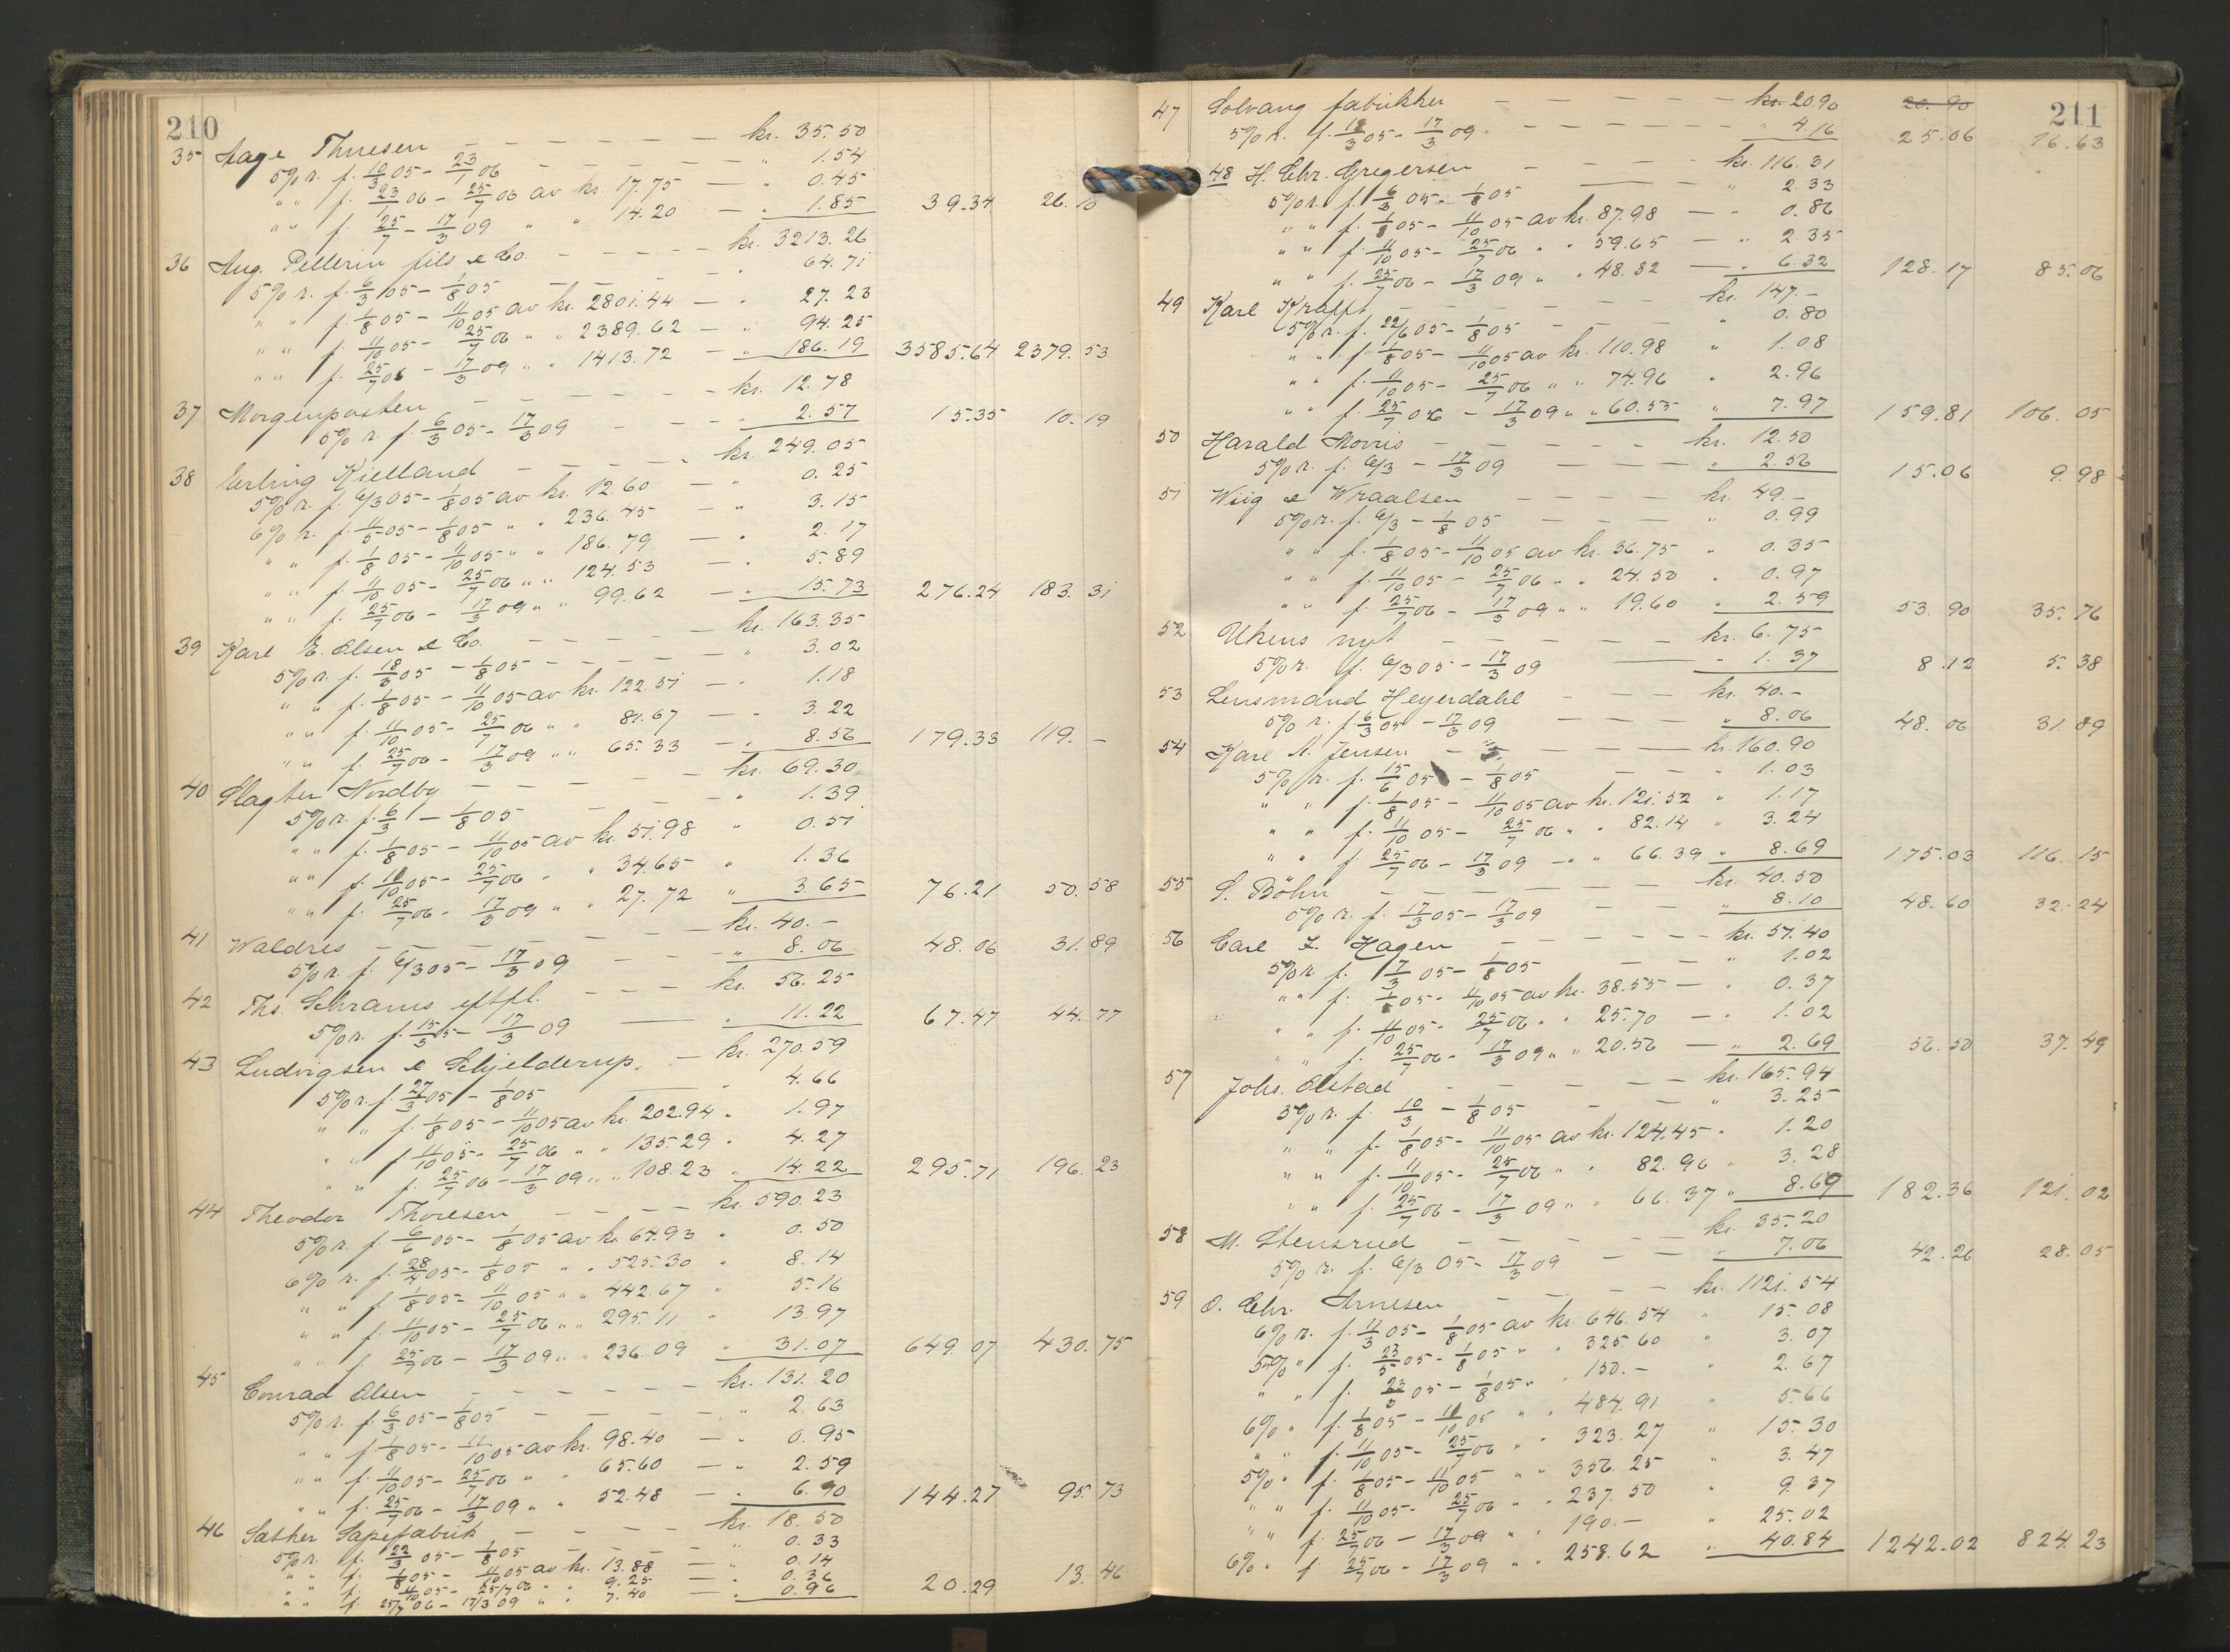 210
35 Aage Thuesen — — — — — kr. 35.50
5% r. f. 10/3 05 - 23/1 06 — — — — " 1.54
" " f. 23/1 06 - 25/7 06 av kr. 17.75 — " 0.45
" " f. 25/7 - 17/3 09 " " 14.20 — " 1.85 39.34 26.10
36 Aug. Pellerin fils & Co. — — — — kr. 3213.26
5% r. f. 6/3 05 - 1/8 05 — — " 64.71
" " f. 1/8 05 - 11/10 05 av kr. 2801.44 — " 27.23
" " f. 11/10 05 - 25/7 06 " " 2389.62 — " 94.25
" " f. 25/7 06 - 17/3 09 " " 1413.72 — " 186.19 3585.64 2379.53
37 Morgenposten — — — — — kr. 12.78
5% r. f. 6/3 05 - 17/3 09 — — — " 2.57 15.35 10.19
38 Erling Kielland — — — — kr. 249.05
5% r. f. 6/3 05 - 1/8 05 av kr. 12.60 — " 0.25
6% r. f. 11/5 05 - 1/8 05 " " 236.45 — " 3.15
" " f. 1/8 05 - 11/10 05 " " 186.79 — " 2.17
" " f. 11/10 05 - 25/7 06 " " 124.53 — " 5.89
" " f. 25/7 06 - 17/3 09 " " 99.62 — " 15.73 276.24 183.31
39 Karl E. Olsen & Co. — — — — kr. 163.35
5% r. f. 18/3 05 - 1/8 05 — — — — " 3.02
" " f. 1/8 05 - 11/10 05 av kr. 122.51 — " 1.18
" " f. 11/10 05 - 25/7 06 " " 81.67 — " 3.22
" " f. 25/7 06 - 17/3 09 " " 65.33 — " 8.56 179.33 119.—
40 Slagter Nordby — — — — — kr. 69.30
5% r. f. 6/3 - 1/8 05 — — — " 1.39
" " f. 1/8 05 - 11/10 05 av kr. 51.98 " 0.51
" " f. 11/10 05 - 25/7 06 " " 34.65 " 1.36
" " f. 25/7 06 - 17/3 09 " " 27.72 " 3.65 76.21 50.58
41 Waldres — — — — — kr. 40.—
5% r. f. 6/3 05 - 17/3 09 — — — " 8.06 48.06 31.89
42 Ths. Schrams eftfl. — — — kr. 56.25
5% r. f. 15/3 5 - 17/3 09 — " 11.22 67.47 44.77
43 Ludvigsen & Schjelderup. — kr. 270.59
5% r. f. 27/3 05 - 1/8 05 — " 4.66
" " f. 1/8 05 - 11/10 05 av kr. 202.94 " 1.97
" " f. 11/10 05 - 25/7 06 " " 135.29 " 4.27
" " f. 25/7 06 - 17/3 09 " " 108.23 " 14.22 295.71 196.23
44 Theodor Thoresen — — — — kr. 590.23
5% r. f. 6/6 05 - 1/8 05 av kr. 64.93 " 0.50
6% r. f. 28/4 05 - 1/8 05 " " 525.30 " 8.14
" " f. 1/8 05 - 11/10 05 " " 442.67 " 5.16
" " f. 11/10 05 - 25/7 06 " " 295.11 " 13.97
" " f. 25/7 06 - 17/3 09 " " 236.09 " 31.07 649.07 430.75
45 Conrad Olsen — — — — — — kr. 131.20
5% r. f. 6/3 05 - 1/8 05 — — — — " 2.63
" " f. 1/8 05 - 11/10 05 av kr. 98.40 — " 0.95
" " f. 11/10 05 - 25/7 06 " " 65.60 — " 2.59
" " f. 25/7 06 - 17/3 09 " " 52.48 — " 6.90 144.27 95.73
46 Sæther Sæpefabrik — — — — kr. 18.50
5% r. f. 22/3 05 - 1/8 05 — — — " 0.33
" " f. 1/8 05 - 11/10 05 av kr. 13.88 — " 0.14
" " f. 11/10 05 - 25/7 06 " " 9.25 — " 0.36
" " f. 25/7 06 - 17/3 09 " " 7.40 — " 0.96 20.29 13.46
211
47 Solvang fabrikker — — — — — kr. 20.90 20.90
5% r. f. 18/3 05 - 17/3 09 — — — — — " 4.16 25.06 16.63
48 H. Chr. Gregersen — — — — kr. 116.31
5% r. f. 6/3 05 - 1/8 05 — — " 2.33
" " f. 1/8 05 - 11/10 05 av kr. 87.98 — " 0.86
" " f. 11/10 05 - 25/7 06 " " 59.65 — " 2.35
" " f. 25/7 06 - 17/3 09 " " 48.32 — " 6.32 128.17 85.06
49 Karl Krafft — — — — — kr. 147.—
5% r. f. 22/6 05 - 1/8 05 — — — " 0.80
" " f. 1/8 05 - 11/10 05 av kr. 110.98 " 1.08
" " f. 11/10 05 - 25/7 06 " " 74.96 " 2.96
" " f. 25/7 06 - 17/3 09 " " 60.55 " 7.97 159.81 106.05
50 Harald Morris — — — — — kr. 12.50
5% r. f. 6/3 - 17/3 09 — — — " 2.56 15.06 9.98
51 Wiig & Wraalsen — — — — kr. 49.—
5% r. f. 6/3 - 1/8 05 — — — " 0.99
" " f. 1/8 05 - 11/10 05 av kr. 36.75 " 0.35
" " f. 11/10 05 - 25/7 06 " " 24.50 " 0.97
" " f. 25/7 06 - 17/3 09 " " 19.60 " 2.59 53.90 35.76
52 Ukens nyt — — — — — kr. 6.75
5% r. f. 6/3 05 - 17/3 09 — " 1.37 8.12 5.38
53 Lensmand Heyerdahl — — — kr. 40.—
5% r. f. 6/3 05 - 17/3 09 — — — — " 8.06 48.06 31.89
54 Karl A. Jensen — — — — — kr. 160.90
5% r. f. 15/6 05 - 1/8 05 — — " 1.03
" " f. 1/8 05 - 11/10 05 av kr. 121.52 " 1.17
" " f. 11/10 05 - 25/7 06 " " 82.14 " 3.24
" " f. 25/7 06 - 17/3 09 " " 66.39 " 8.69 175.03 116.15
55 S. Böhn — — — — — — kr. 40.50
5% r. f. 17/3 05 - 17/3 09 — — " 8.10 48.60 32.24
56 Carl F. Hagen — — — — — kr. 51.40
5% r. f. 7/3 05 - 1/8 05 — — " 1.02
" " f. 1/8 05 - 11/10 05 av kr. 38.55 — " 0.37
" " f. 11/10 05 - 25/7 06 " " 25.70 — " 1.02
" " f. 25/7 06 - 17/3 09 " " 20.56 — " 2.69 56.50 37.49
57 Johs. Alstad — — — — — kr. 165.94
5% r. f. 10/3 - 1/8 05 — — " 3.25
" " f. 1/8 05 - 11/10 05 av kr. 124.45 " 1.20
" " f. 11/10 05 - 25/7 06 " " 82.96 " 3.28
" " f. 25/7 06 - 17/3 09 " " 66.37 " 8.69 182.36 121.02
58 M. Stensrud — — — — — kr. 35.20
5% r. f. 6/3 05 - 17/3 09 — — " 7.06 42.26 28.05
59 O. Chr. Arnesen — — — — kr. 1121.54
6% r. f. 11/3 05 - 1/8 05 av kr. 646.54 " 15.08
5% " f. 23/5 05 - 1/8 05 " " 325.60 " 3.07
" " f. 23/3 05 - 1/8 05 " " 150.— " 2.67
6% " f. 1/8 05 - 11/10 05 " " 484.91 " 5.66
" " f. 11/10 05 - 25/7 06 " " 323.27 " 15.30
5% " f. 1/8 05 - 11/10 05 " " 356.25 " 3.47
" " f. 11/10 05 - 25/7 06 " " 237.50 " 9.37
" " f. 25/7 06 - 17/3 09 " " 190.— " 25.02
6% " f. 25/7 06 - 17/3 09 " " 258.62 " 40.84 1242.02 824.23